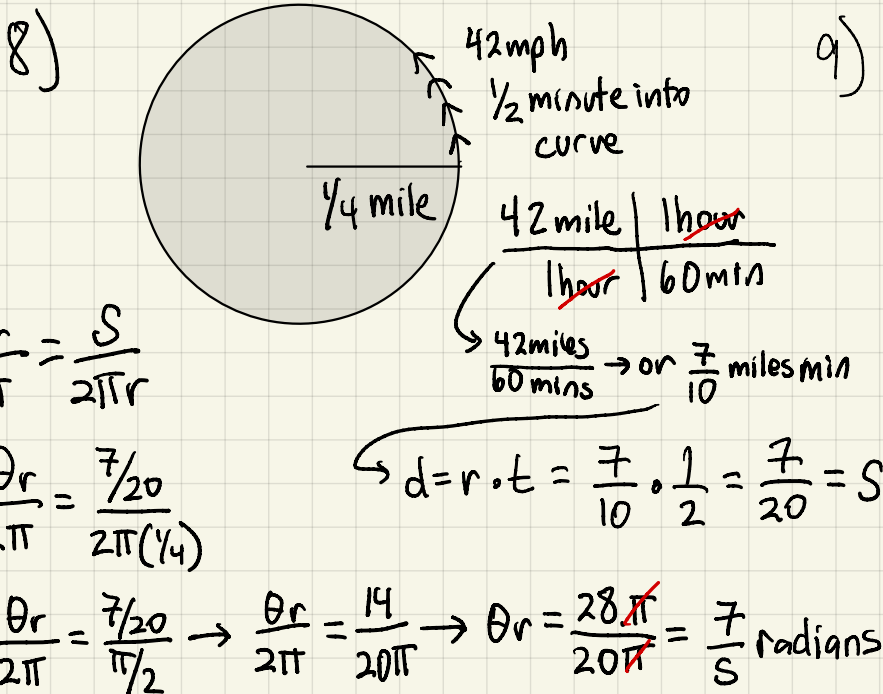 8)
42mph
9)
1/2 minute into
curve
1/4 mile
42 mile | 1 hour
1 hour | 60 min
42 miles / 60 mins → or 7/10 miles min
r/π = S/2πr
d = r · t = 7/10 · 1/2 = 7/20 = S
θr/2π = 7/20 / 2π(1/4)
θr/2π = 7/20 / π/2 → θr/2π = 14/20π → θr = 28π/20π = 7/5 radians